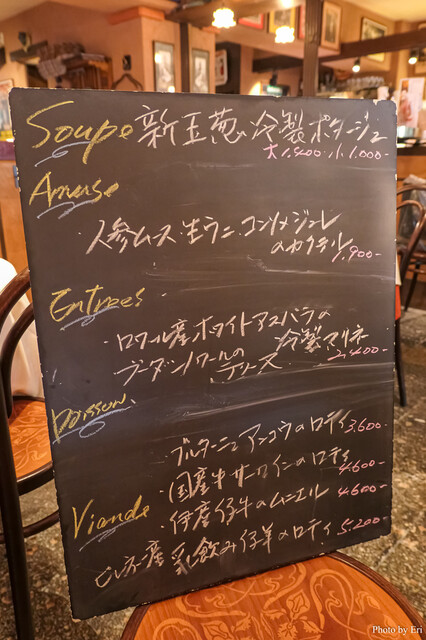 Soupe 新玉葱の冷製ポタージュ
大 1,400- 小 1,000-
Amuse
・人参ムース 生ウニ コンソメジュレ
のカクテル 1,900-
Entrées
・ロワール産ホワイトアスパラの
冷製マリネ
ブーダンノワールのテリーヌ 2,400-
Poisson
・ブルターニュアンコウのロティ 3,600-
・国産牛サーロインのロティ 4,600-
Viande ・伊産仔牛のムニエル 4,600-
ピレネー産乳飲み仔羊のロティ 5,200-
Photo by Eri